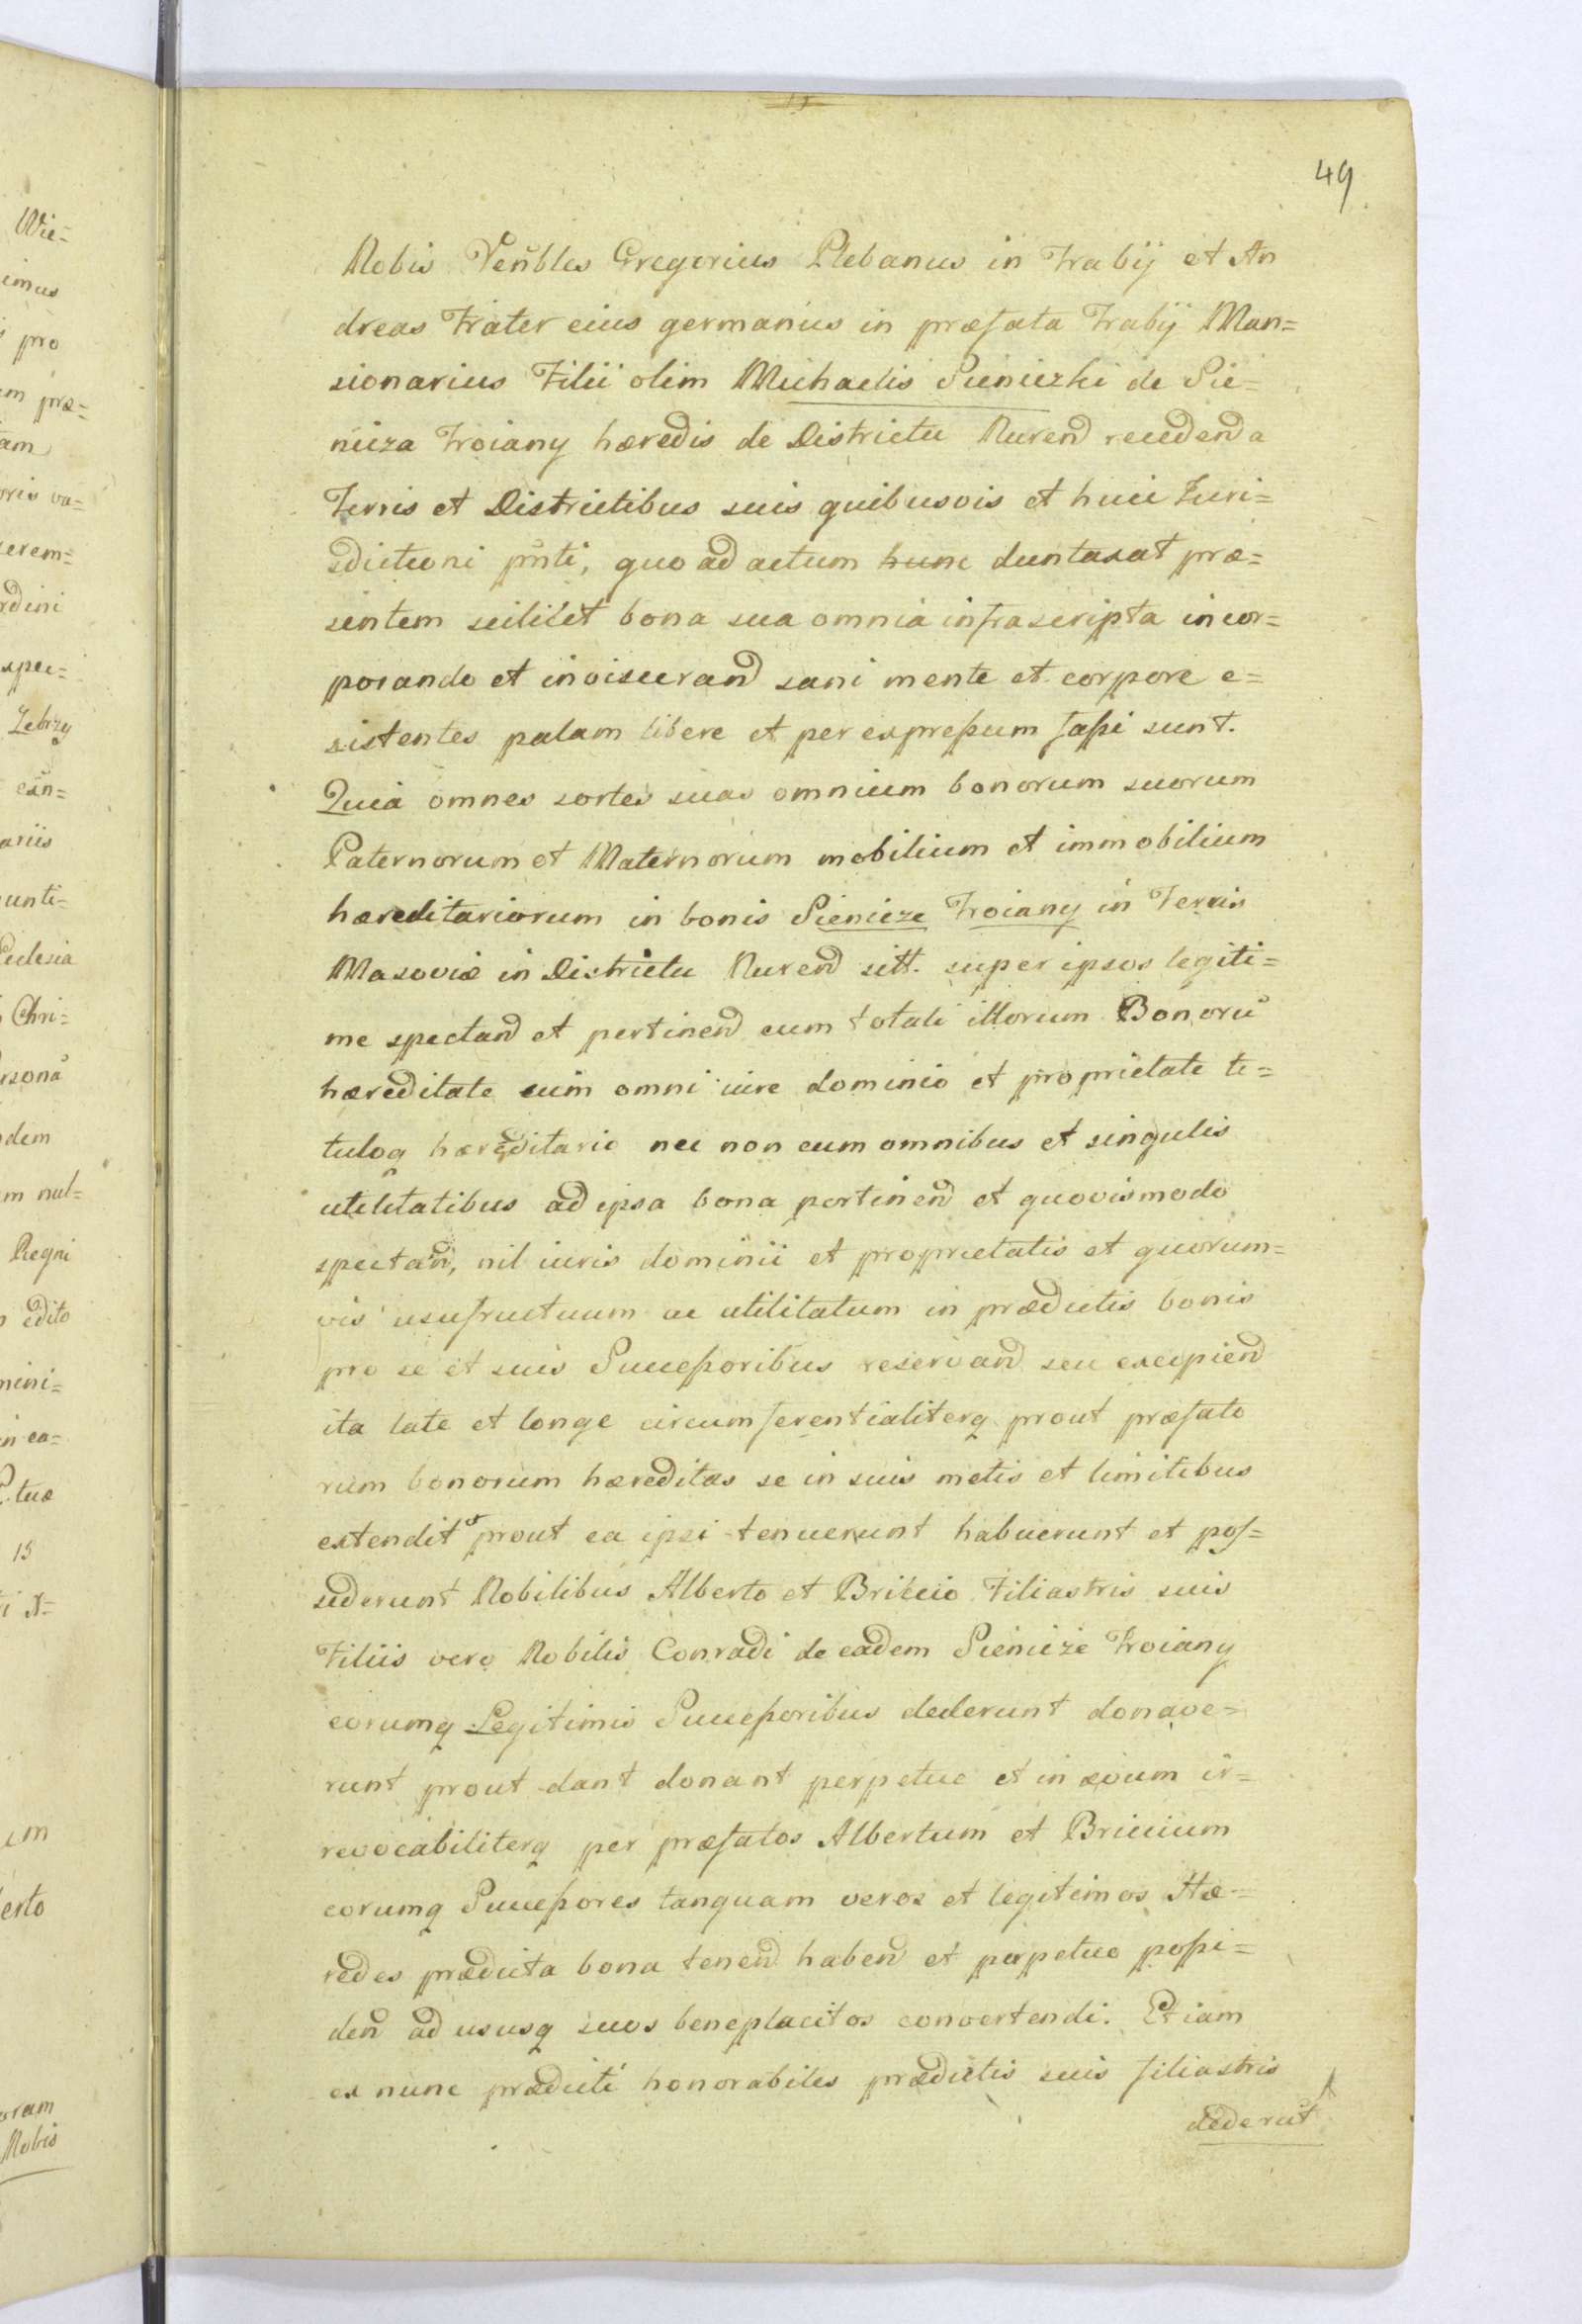 49
Nobis Venbles Gregorius Plebanus in Traby et An
dreas Frater eius germanus in præfata Traby Man=
sionarius Filii olim Michaelis Sieniczki de Sie=
nicza Troiany hæredis de Districtu Nurend recedenda
Terris et Districtibus suis quibusvis et huic Iuri=
sdictioni pnti, quo ad actum hunc duntaxat præ=
sentem scilicet bona sua omnia infrascripta incor=
porando et inviscerand sani mente et corpore e=
xistentes palam libere et per expreßum faßi sunt.
Quia omnes sortes suas omnium bonorum suorum
Paternorum et Maternorum mobilium et immobilium
hæreditariorum in bonis Sienicze Troiany in Terris
Masoviæ in Districtu Nurend sitt. super ipsos legiti=
me spectand et pertinend cum totali illorum Bonorū
hæreditate cum omni iure dominio et proprietate ti=
tuloq hæreditario nec non cum omnibus et singulis
utilitatibus ad ipsa bona pertinend et quovismodo
spectand, nil iuris dominii et proprietatis et quorum=
vis usufructuum ac utilitatum in prædictis bonis
pro se et suis Succeßoribus reservand seu excipiend
ita late et longe circumferentialiterq prout præfato
rum bonorum hæreditas se in suis metis et limitibus
extendit et prout ea ipsi tenuerunt habuerunt et pos=
sederunt Nobilibus Alberto et Briccio Filiastris suis
Filiis vero Nobilis Conradi de eadem Sienicze Troiany
eorumq Legitimis Succeßoribus dederunt donave=
runt prout dant donant perpetue et in ævum ir=
revocabiliterq per præfatos Albertum et Briccium
eorumq Succeßores tanquam veros et legitimos Hæ=
redes prædicta bona tenend habend et perpetuo poßi=
dend ad ususq suos beneplacitos convertendi. Et iam
ex nunc prædicti honorabiles prædictis suis filiastris
dederūt